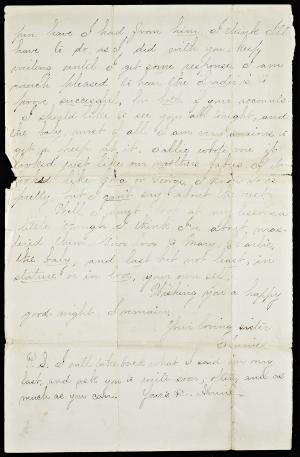 him have I had from him, I think I'll
have to do as I did with you. Keep
writing until I get some response. I am
much pleased to hear the trade is to
prove successful, for both of our accounts
I should like to see you all tonight, and
the baby most of all. I am very anxious to
get a peep at it. Sallie wrote me it
looked just like our mothers babies or it
looked like or George, I know it is
pretty, but I can't say about the rest.
Well I must look at my lessons a
little though I think I've about mas-
tered them. Give love to Mary, Charlie,
the baby, and last but not least, in
stature or in love, your own self.
Wishing you a happy
good night. I remain,
Your loving sister
Annie
P.S. I will take back what I said in my
last, and ask you to write soon, often, and as
much as you can. Yours &c. Annie